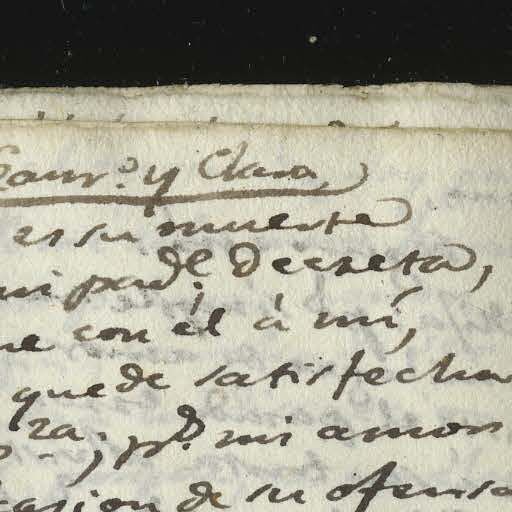 Laur.º y Clara
es su muerte
mi padᵉ. decreta,
me con él á mí,
quede satisfecha
za; pº. mi amor
casion de su ofensa